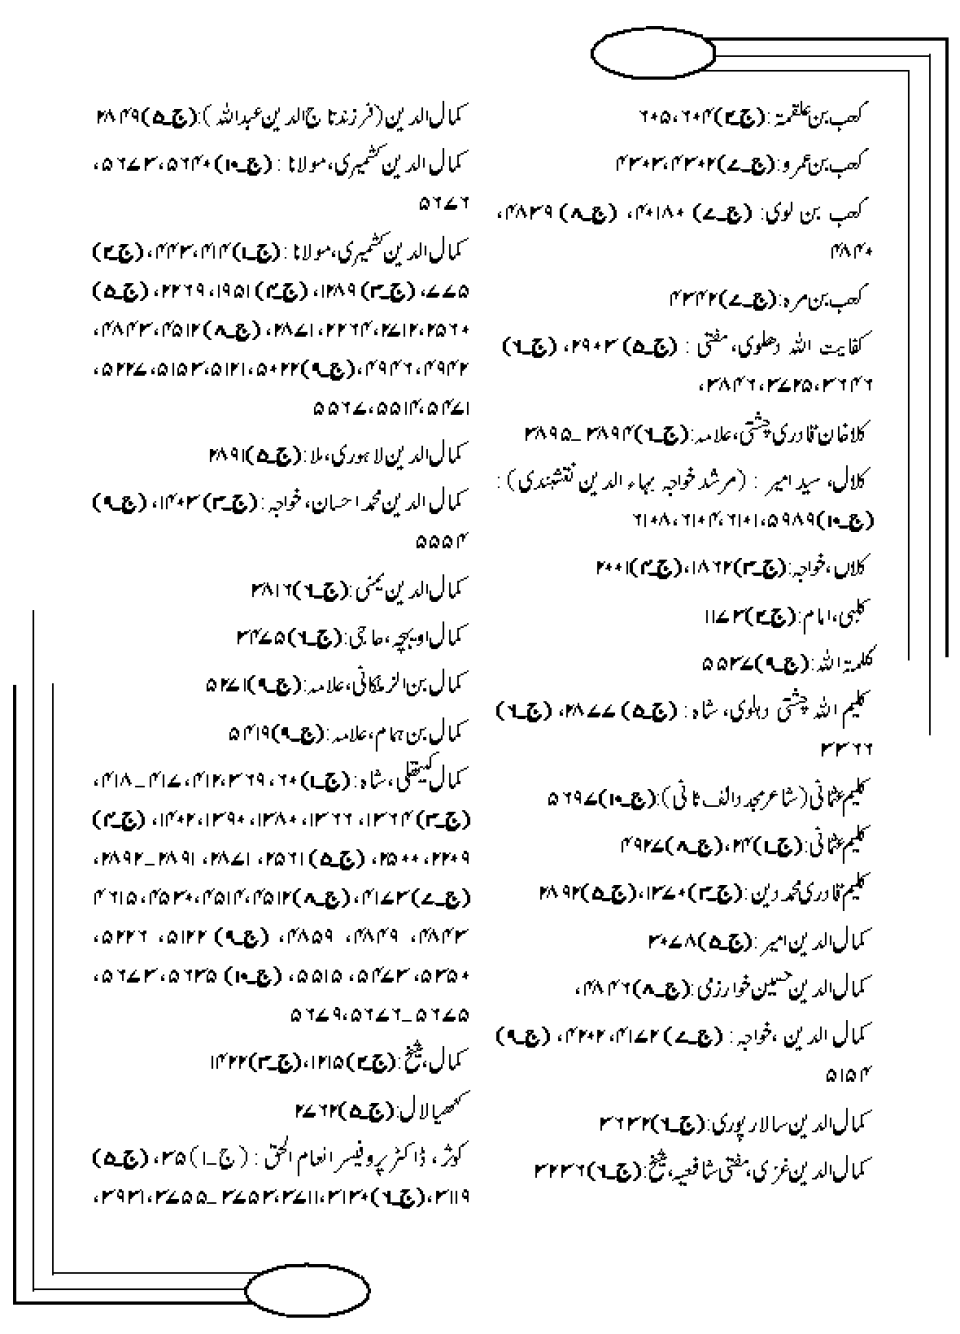 کعب بن علقمۃ:(ج۔۲)۶۰۵،۶۰۴
کعب بن عمرو:(ج۔۷)۴۳۰۳،۴۳۰۲
کعب بن لوی: (ج۔۷) ۴۰۱۸۰، (ج۔۸) ۴۸۳۹،
۴۸۴۰
کعب بن مرہ:(ج۔۷)۴۳۴۲
کفایت اللہ دھلوی،مفتی : (ج۔۵) ۲۹۰۳، (ج۔۶)
۳۶۴۶،۳۷۲۵،۳۸۴۶،
کلاخان قادری چشتی،علامہ:(ج۔۶)۳۸۹۴_۳۸۹۵
کلال، سید امیر : (مرشد خواجہ بہاء الدین نقشبندی) :
(ج۔۱۰)۵۹۸۹،۶۱۰۱،۶۱۰۴،۶۱۰۸
کلاں،خواجہ:(ج۔۳)۱۸۶۲،(ج۔۴)۲۰۰۱
کلبی،امام:(ج۔۲)۱۱۷۳
کلمۃ اللہ:(ج۔۹)۵۵۳۷
کلیم اللہ چشتی دہلوی، شاہ: (ج۔۵) ۲۸۷۷، (ج۔۶)
۳۳۶۶
کلیم عثمانی(شاعر مجدد الف ثانی):(ج۔۱۰)۵۶۹۷
کلیم عثمانی:(ج۔۱)۲۴،(ج۔۸)۴۹۲۷
کلیم قادری محمد دین:(ج۔۳)۱۳۷۰،(ج۔۵)۲۸۹۲
کمال الدین امیر:(ج۔۵)۳۰۷۸
کمال الدین حسین خوارزمی:(ج۔۸)۴۸۴۶،
کمال الدین ،خواجہ: (ج۔۷) ۴۱۷۲، ۴۲۰۲، (ج۔۹)
۵۱۵۴
کمال الدین سالار پوری:(ج۔۶)۳۶۳۲
کمال الدین غزی،مفتی شافعیہ،شیخ:(ج۔۶)۳۲۳۶
کمال الدین(فرزند تاج الدین عبداللہ):(ج۔۵)۲۸۴۹
کمال الدین کشمیری،مولانا : (ج۔۱۰) ۵۶۴۰، ۵۶۷۳،
۵۶۷۶
کمال الدین کشمیری،مولانا:(ج۔۱)۴۱۴،۴۴۳،(ج۔۲)
۷۷۵،(ج۔۳)۱۲۸۹،(ج۔۴)۱۹۵۱،۲۲۶۹،(ج۔۵)
۲۵۶۰،۲۷۱۲،۲۶۶۴،۲۸۷۱،(ج۔۸)۴۵۱۲،۴۸۴۳،
۴۹۴۲،۴۹۴۶،(ج۔۹)۵۰۲۲،۵۱۲۱،۵۱۵۳،۵۲۲۷،
۵۴۷۱،۵۵۱۴،۵۵۶۷
کمال الدین لاہوری،ملا:(ج۔۵)۲۸۹۱
کمال الدین محمد احسان،خواجہ:(ج۔۳)۱۴۰۳،(ج۔۹)
۵۵۵۴
کمال الدین یمنی:(ج۔۶)۳۸۱۶
کمال اوبہچہ،حاجی:(ج۔۶)۳۴۷۵
کمال بن الزملکانی،علامہ:(ج۔۹)۵۲۷۱
کمال بن ہمام،علامہ:(ج۔۹)۵۴۱۹
کمال کیتھلی،شاہ:(ج۔۱)۶۰، ۳۶۹،۴۱۲، ۴۱۷_۴۱۸،
(ج۔۳)۱۳۶۴، ۱۳۶۶، ۱۳۸۰، ۱۳۹۰،۱۴۰۲، (ج۔۴)
۲۲۰۹، ۲۵۰۰، (ج۔۵) ۲۵۶۱، ۲۸۷۱، ۲۸۹۱_۲۸۹۲،
(ج۔۷)۴۱۷۳،(ج۔۸)۴۵۱۲،۴۵۱۴،۴۵۳۰،۴۶۱۵
۴۸۴۳، ۴۸۴۹، ۴۸۵۹، (ج۔۹) ۵۱۲۲، ۵۲۲۶،
۵۳۵۰، ۵۴۷۳، ۵۵۱۵، (ج۔۱۰) ۵۶۳۵، ۵۶۷۳،
۵۶۷۵_۵۶۷۶،۵۶۷۹
کمال،شیخ:(ج۔۲)۱۲۱۵،(ج۔۳)۱۴۲۲
کنھیا لال:(ج۔۵)۲۷۶۲
کوثر، ڈاکٹر پروفیسر انعام الحق : (ج۔۱) ۳۵، (ج۔۵)
۳۱۱۹،(ج۔۶)۳۱۳۰،۳۷۱۱،۳۷۵۳_۳۷۵۵،۳۹۳۱،